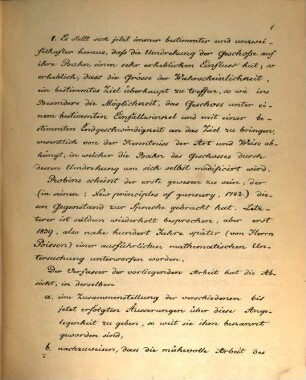 1
1. Es stellt sich jetzt immer bestimmter und unzwei-
felhafter heraus, daß die Umdrehung der Geschosse auf
ihre Bahn einen sehr erheblichen Einfluss hat; so
erheblich, dass die Grösse der Wahrscheinlichkeit,
ein bestimmtes Ziel überhaupt zu treffen, so wie ins
Besondere die Möglichkeit, das Geschoss unter ei-
nem bestimmten Einfallwinkel und mit einer be-
stimmten Endgeschwindigkeit an das Ziel zu bringen,
wesentlich von der Kenntniss der Art und Weise ab-
hängt, in welcher die Bahn des Geschosses durch
dessen Umdrehung um sich selbst modificirt wird.
Robins scheint der erste gewesen zu sein, der
(in seinen: New principles of gunnery, 1742.) die-
sen Gegenstand zur Sprache gebracht hat. Letz-
terer ist seitdem wiederholt besprochen, aber erst
1839, also nahe hundert Jahre später (von Herrn
Poisson) einer ausführlichen mathematischen Un-
tersuchung unterworfen worden.
Der Verfasser der vorliegenden Arbeit hat die Ab-
sicht, in derselben
a. eine Zusammenstellung der verschiedenen bis
jetzt erfolgten Äusserungen über diese Ange-
legenheit zu geben, so weit sie ihm bekannt
geworden sind,
b. nachzuweisen, dass die mühevolle Arbeit des